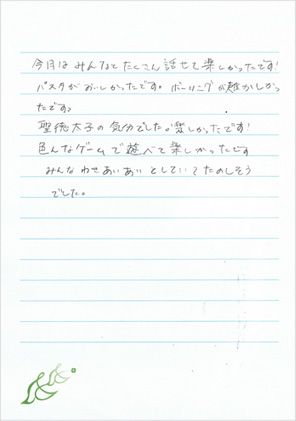 今日はみんなでたくさん話せて楽しかったです!
パスタがおいしかったです。ボーリングが難しかっ
たです。
聖徳太子の気分でした。楽しかったです!
色んなゲームで遊べて楽しかったです
みんなわきあいあいとしていてたのしそう
でした。